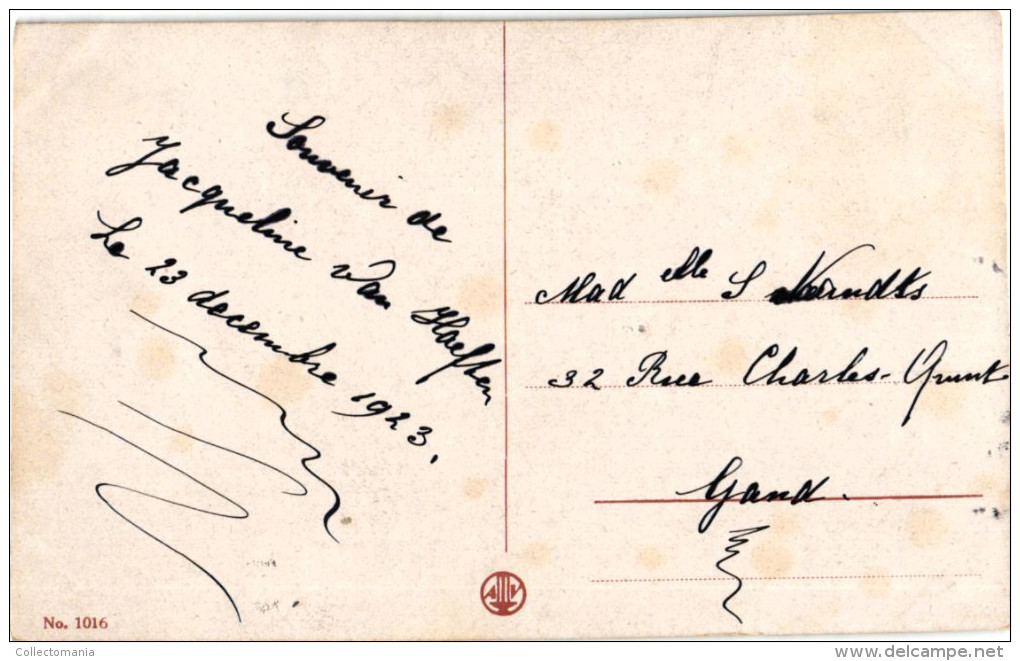 Souvenir de
Jacqueline Van Haeften
Le 23 decembre 1923.
Mad elle S
32 Rue Charles-Quint
Gand.
No. 1016
Collectomania
www.delcampe.net